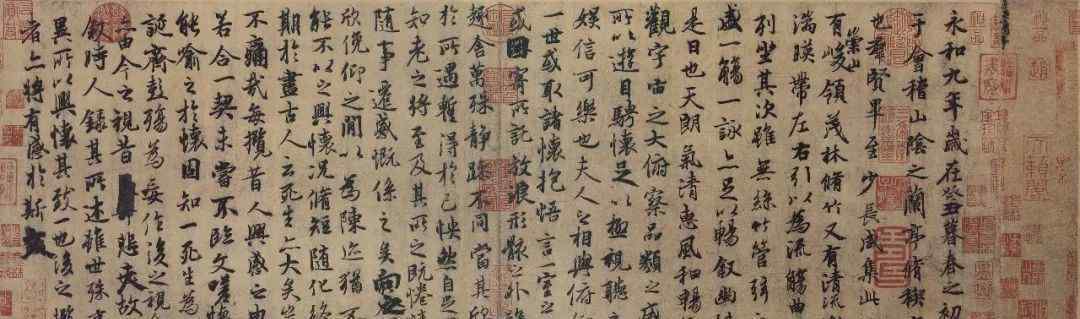 永和九年歲在癸丑暮春之初
于會稽山陰之蘭亭脩稧
也群賢畢至少長咸集此
有崇山峻領茂林脩竹又有清流
湍暎帶左右引以為流觴曲
列坐其次雖無絲竹管弦
盛一觴一詠亦足以暢敘幽
是日也天朗氣清惠風和暢
觀宇宙之大俯察品類之盛
所以遊目騁懷足以極視聽
娛信可樂也夫人之相與俯
一世或取諸懷抱悟言一室之
或因寄所託放浪形骸之外雖
趣舍萬殊靜躁不同當其欣
於所遇蹔得於己怏然自足
知老之將至及其所之既惓情
隨事遷感慨係之矣向之
欣俛仰之閒以為陳迹猶不
能不以之興懷況脩短隨化終
期於盡古人云死生亦大矣
不痛哉每攬昔人興感之由
若合一契未嘗不臨文嗟悼
能喻之於懷固知一死生為
誕齊彭殤為妄作後之視
亦由今之視昔悲夫故
敘時人錄其所述雖世殊事
異所以興懷其致一也後之攬
者亦將有感於斯文